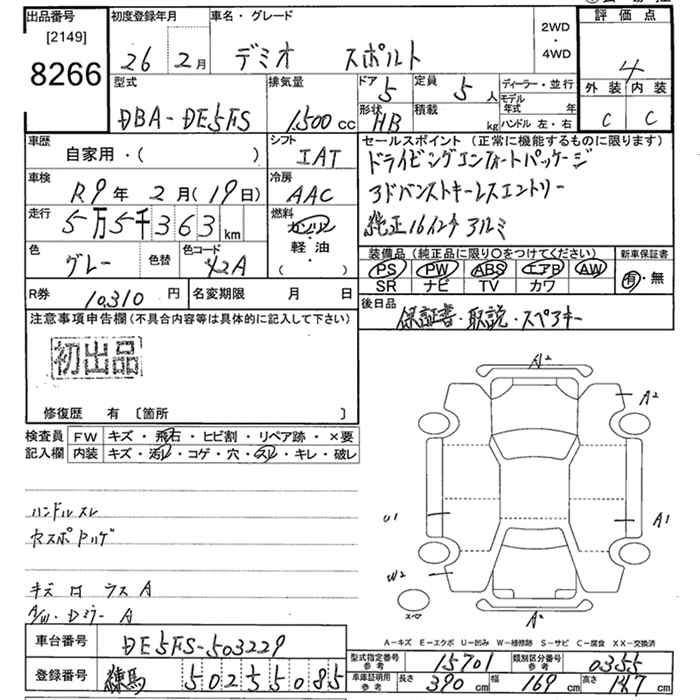 出品番号
[2149]
8266
初度登録年月
26 2月
車名・グレード
デミオ スポルト
2WD
・
4WD
評価点
4
外装 内装
C C
型式
DBA-DE5FS
排気量
1,500cc
ドア
5
定員
5人
ディーラー・並行
形状
HB
積載
kg
モデル年式 年
ハンドル 左・右
車歴
自家用・( )
シフト
IAT
セールスポイント (正常に機能するものに限ります)
ドライビングコンフォートパッケージ
アドバンストキーレスエントリー
純正16インチアルミ
車検
R9年 2月(19日)
冷房
AAC
走行
5万5千363km
燃料
ガソリン
軽・油
( )
色
グレー
色替
色コード
42A
装備品 (純正品に限り〇をつけてください)
PS PW ABS エアB AW
SR ナビ TV カワ
新車保証書
有・無
R券
10,310円
名変期限 月 日
後日品
保証書・取説・スペアキー
注意事項申告欄(不具合内容等は具体的に記入して下さい)
初出品
修復歴 有 〔箇所 〕
検査員記入欄
FW キズ・飛石・ヒビ割・リペア跡・×要
内装 キズ・汚れ・コゲ・穴・スレ・キレ・破レ
ハンドルスレ
キズ ロ ラス A
A/W・Dミラー A
A2
A2
U1
A1
W2
A2
A-キズ E-エクボ U-凹み W-補修跡 S-サビ C-腐食 XX-交換済
車台番号
DE5FS-503229
登録番号
練馬 502 5 5085
型式指定番号
参考
15701
類別区分番号
参考
0355
車庫証明用
参考
長さ 390cm 幅 169cm 高さ 147cm